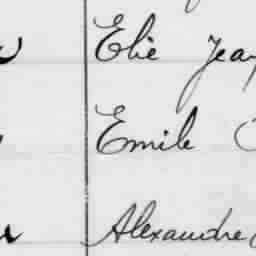 Elie Jean
Emile
Alexandre